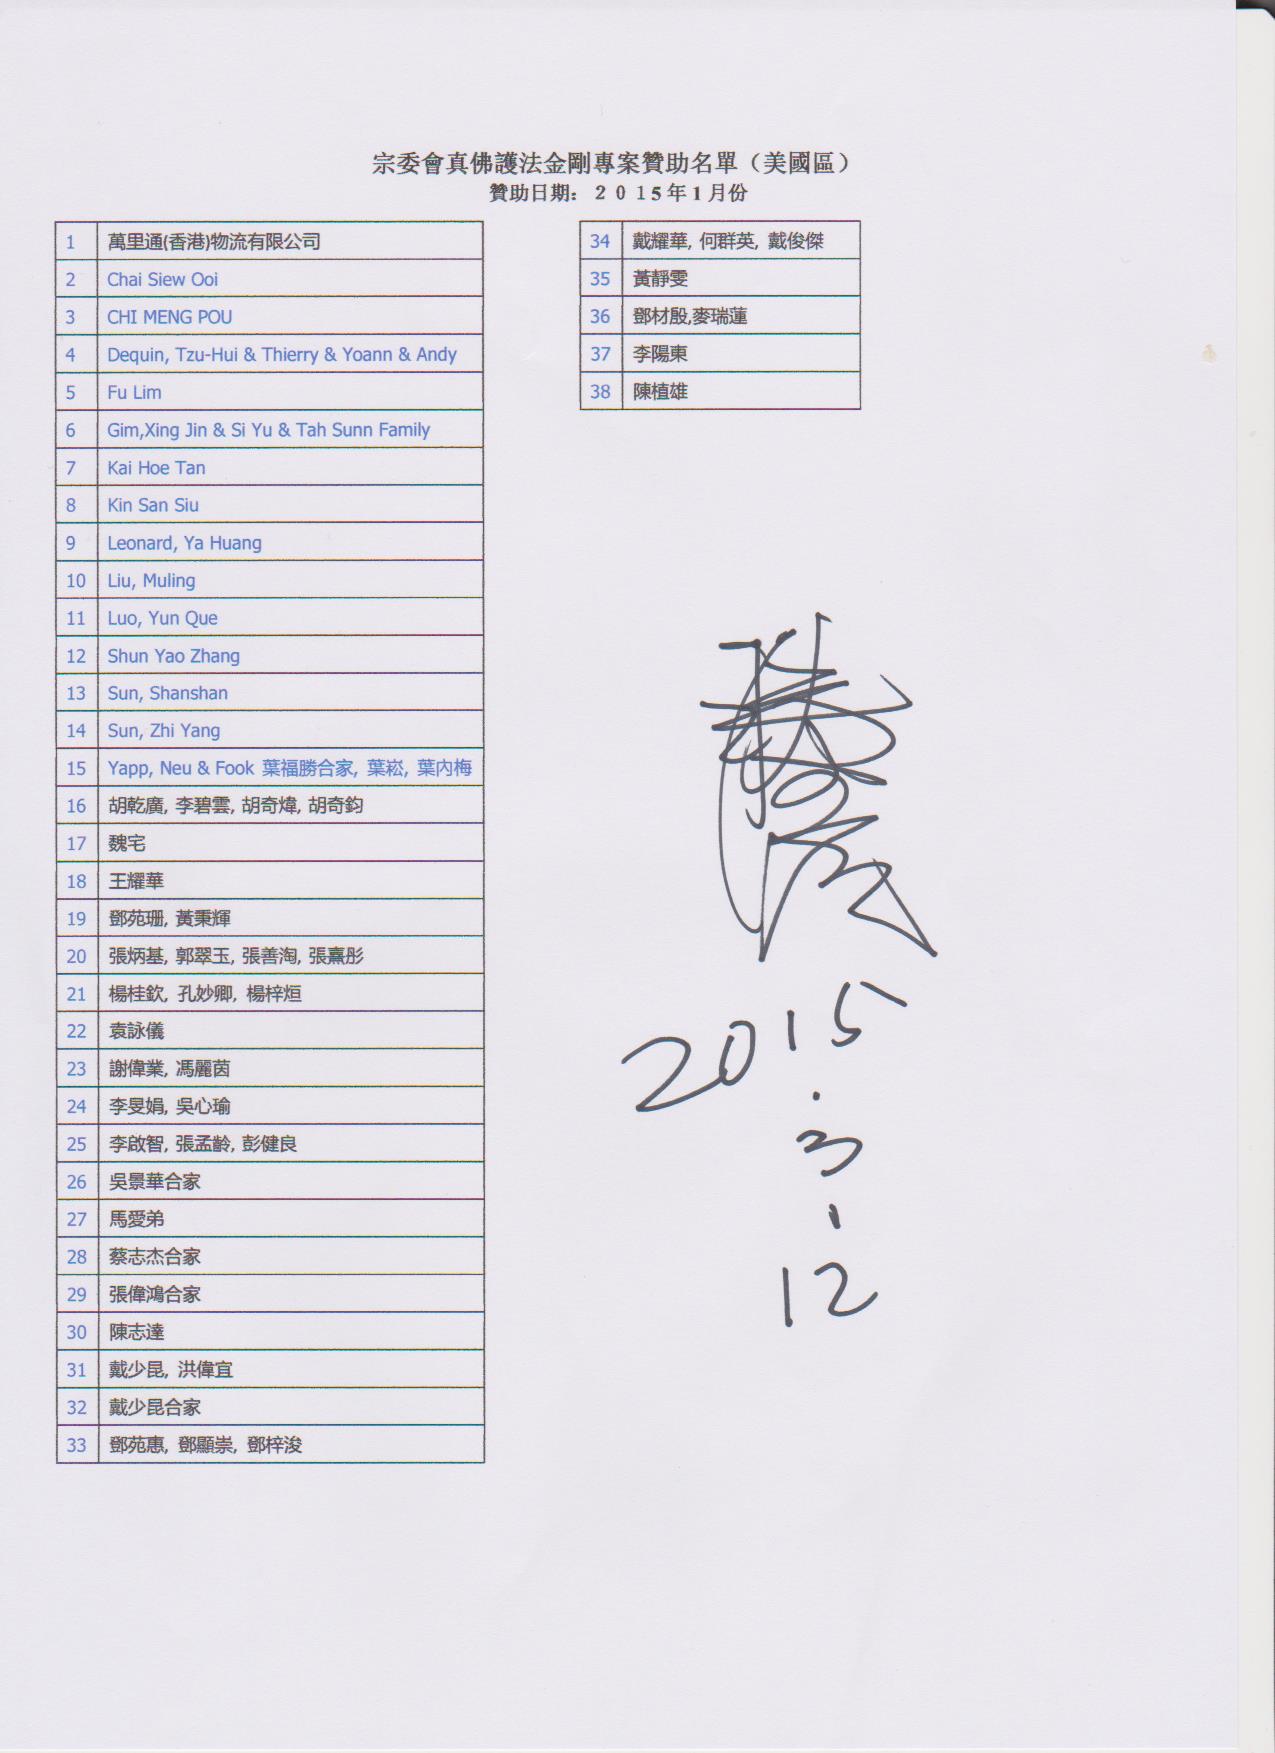 宗委會真佛護法金剛專案贊助名單（美國區）
贊助日期：２０１５年１月份
1 萬里通(香港)物流有限公司
2 Chai Siew Ooi
3 CHI MENG POU
4 Dequin, Tzu-Hui & Thierry & Yoann & Andy
5 Fu Lim
6 Gim,Xing Jin & Si Yu & Tah Sunn Family
7 Kai Hoe Tan
8 Kin San Siu
9 Leonard, Ya Huang
10 Liu, Muling
11 Luo, Yun Que
12 Shun Yao Zhang
13 Sun, Shanshan
14 Sun, Zhi Yang
15 Yapp, Neu & Fook 葉福勝合家, 葉崧, 葉內梅
16 胡乾廣, 李碧雲, 胡奇煒, 胡奇鈞
17 魏宅
18 王耀華
19 鄧苑珊, 黃秉輝
20 張炳基, 郭翠玉, 張善淘, 張熹彤
21 楊桂欽, 孔妙卿, 楊梓烜
22 袁詠儀
23 謝偉業, 馮麗茵
24 李旻娟, 吳心瑜
25 李啟智, 張孟齡, 彭健良
26 吳景華合家
27 馬愛弟
28 蔡志杰合家
29 張偉鴻合家
30 陳志達
31 戴少昆, 洪偉宜
32 戴少昆合家
33 鄧苑惠, 鄧顯崇, 鄧梓浚
34 戴耀華, 何群英, 戴俊傑
35 黃靜雯
36 鄧材殷,麥瑞蓮
37 李陽東
38 陳植雄
2015
.
3
.
12